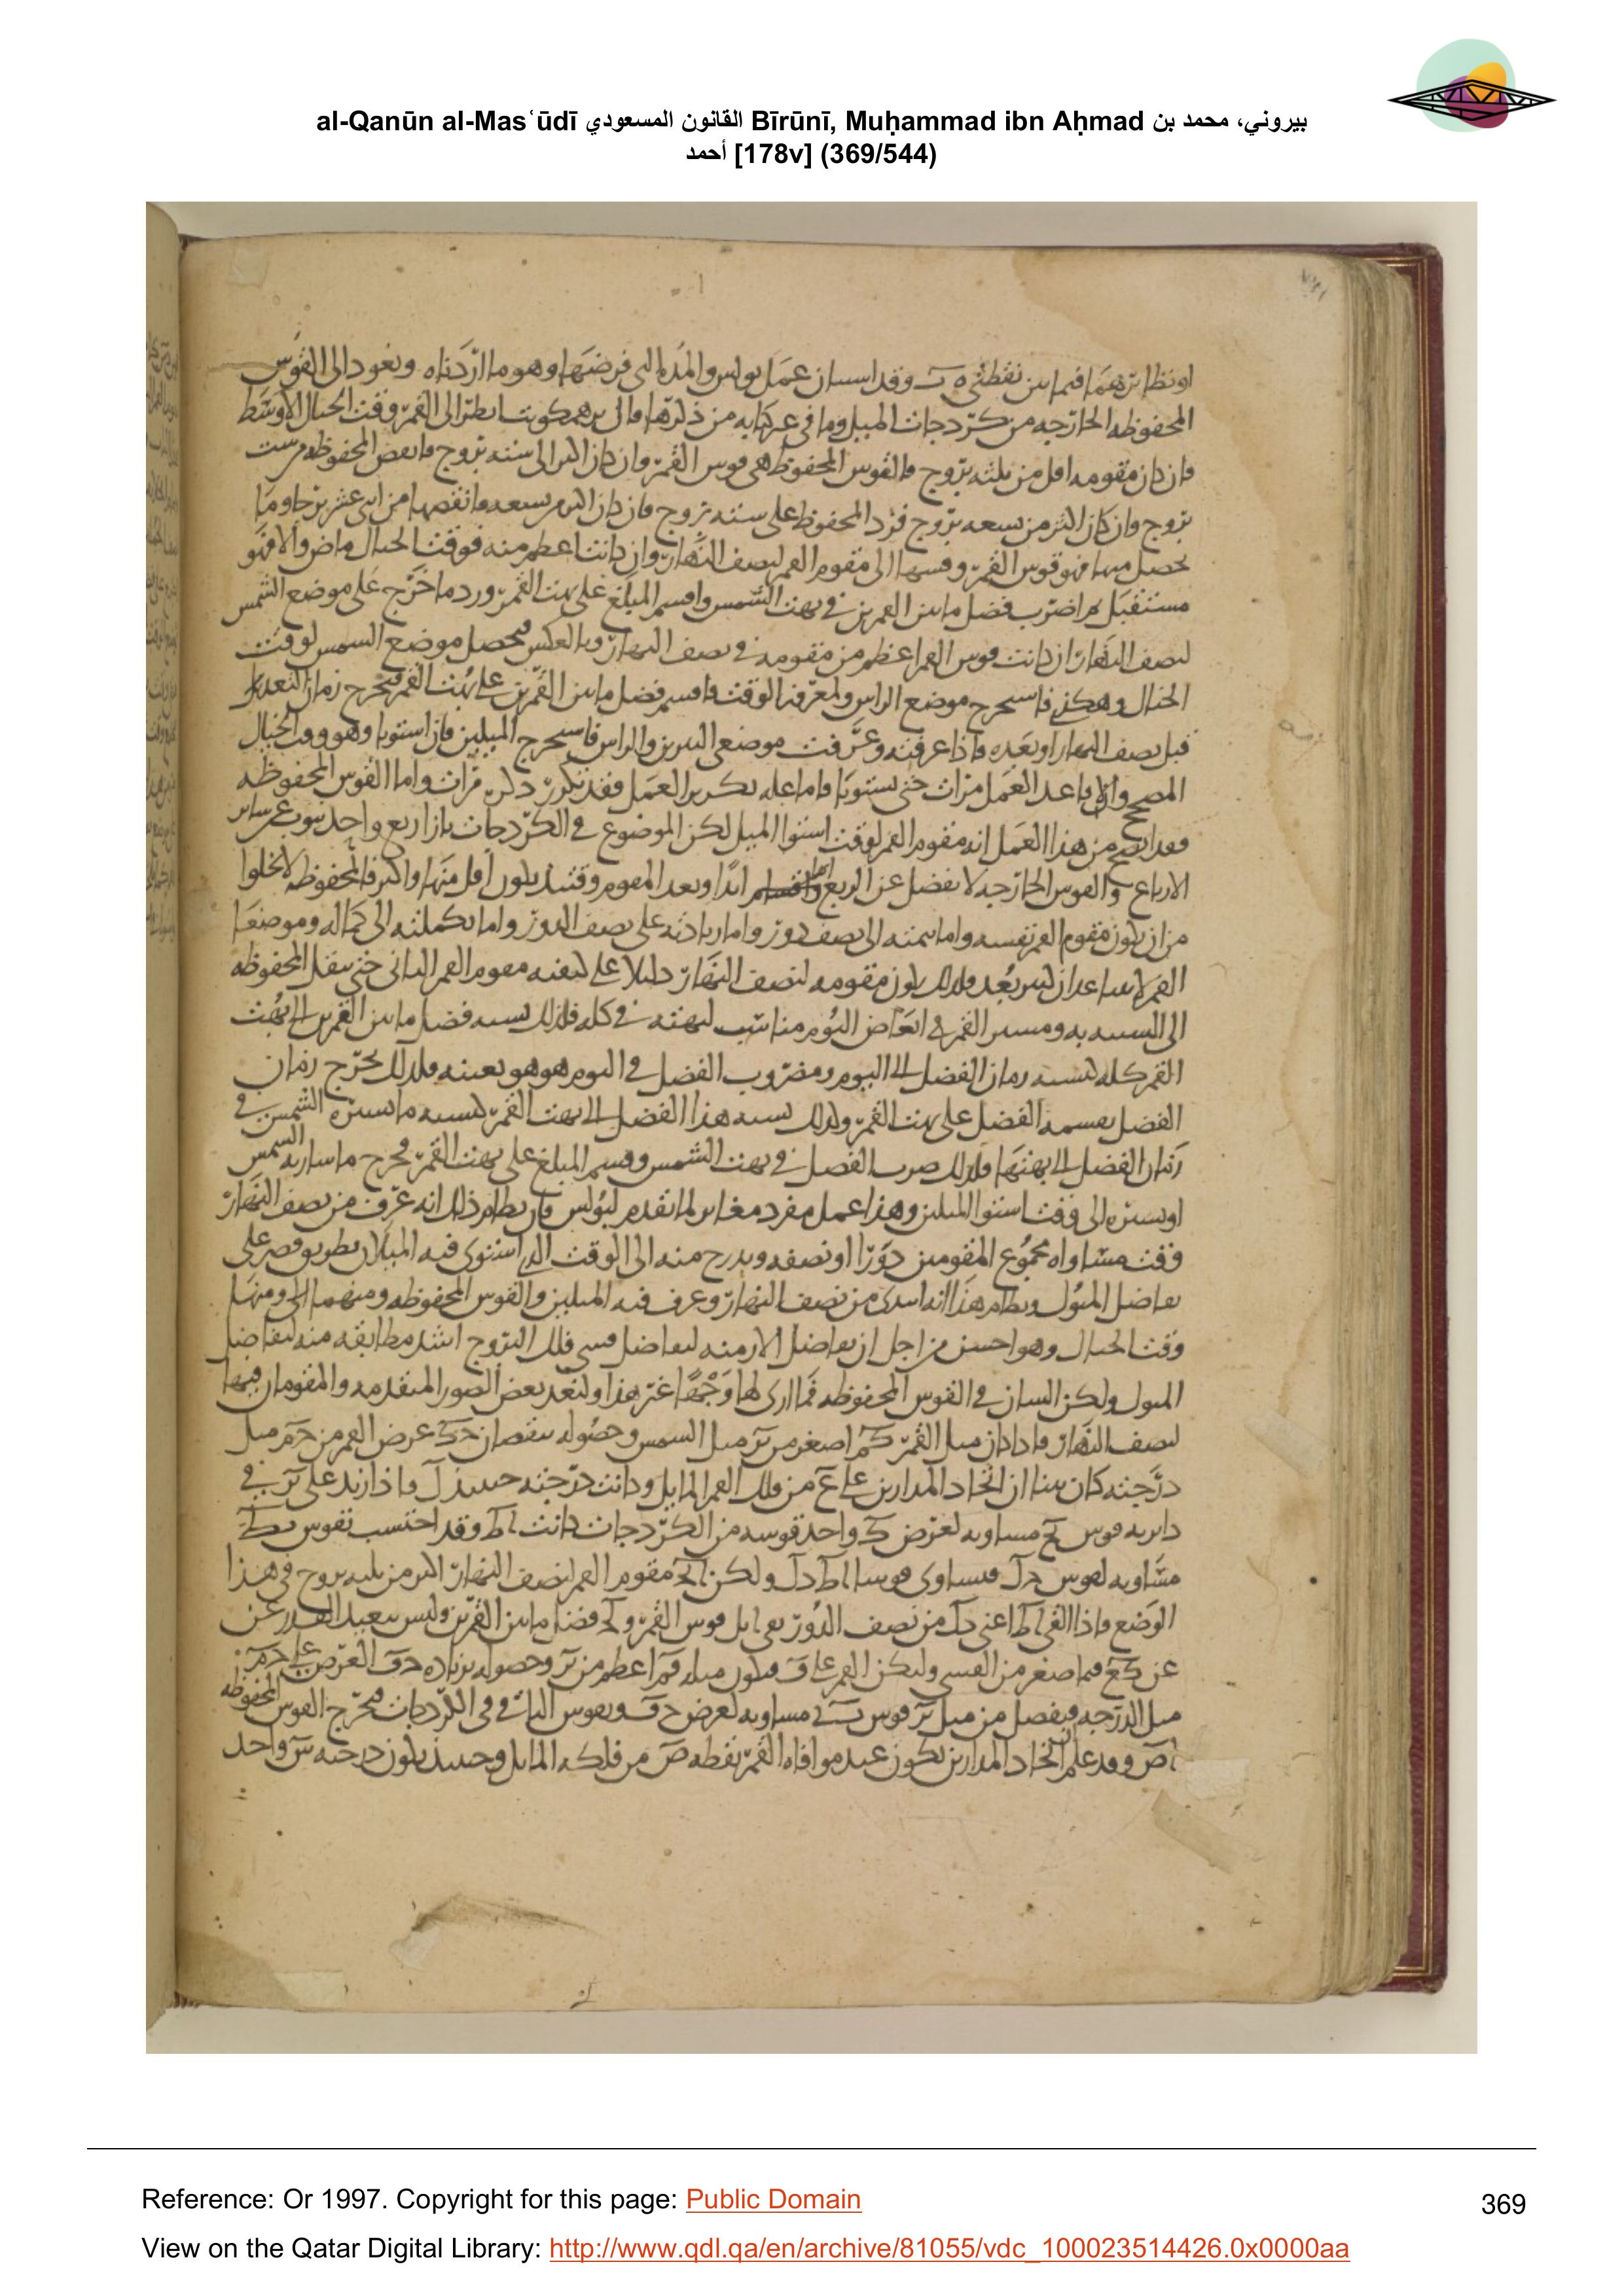 al-Qanūn al-Masʿūdī القانون المسعودي Bīrūnī, Muḥammad ibn Aḥmad بيروني، محمد بن
أحمد [178v] (369/544)
او نظايرهما فيما بين نقطتى ه ب وقد استبان عمل بولس والمده التى فرضها وهو ما اردناه ونعود الى القوس
المحفوظه الخارجه من كردجات الميل وما فى من ذكرها قال برهمكوبت انظر الى القمر وقت الحيال الاوسط
فان كان مقومه اقل من ثلثه بروج فالقوس المحفوظه هى قوس القمر وان كان اكثر الى سته بروج فانقص المحفوظه من ست
بروج وان كان اكثر من سعه بروج فزد المحفوظ على سته بروج فان كان اكثر من سعه فانقصها من اثنى عشر برجا وما
يحصل منها فهو قوس القمر وقسها الى مقوم القمر لنصف النهار وان كانت اعظم منه فوقت الحيال ماض والا فهو
مستقبل ثم اضرب فضل ما بين القمرين فى بهت الشمس واقسم المبلغ على بهت القمر وزد ما خرج على موضع الشمس
لنصف النهار ان كانت قوس القمر اعظم من مقومه فى نصف النهار وبالعكس فيحصل موضع الشمس لوقت
الحيال وهكذى فاستخرج موضع الراس ولمعرفه الوقت فاقسم فضل ما بين القمرين على بهت القمر فيخرج زمان التعديل
قبل نصف النهار او بعده فاذا عرفته وعرفت موضعى النيرين والراس فاستخرج الميلين فان استويا وهو وقت الحيال
المصحح والا فاعد العمل مرات حتى يستويا فاما عله تكرير العمل فقد تكرر ذكره مرات واما القوس المحفوظه
فقد اتضح من هذا العمل انه مقوم القمر لوقت استوا الميل لكن الموضوع فى الكردجات بازا ربع واحد ينوب عن ساير
الارباع والقوس الخارجه لا تفضل عن الربع ابدا وبعد المقوم وقتئذ يكون اقل منها واكثر فالمحفوظه لا تخلوا
من ان يكون مقوم القمر نفسه واما تتمته الى نصف دور واما زيادته على نصف الدور واما تكملته الى كماله وموضعا
القمر لا يتباعدان كثير بعد فلذلك يكون مقومه لنصف النهار دليلا على كيفيه مقوم القمر الثانى حتى ينقل المحفوظه
الى النسبه به ومسير القمر فى ابعاض اليوم مناسب لبهته فى كله فلذلك نسبه فضل ما بين القمرين الى بهت
القمر كله كنسبه زمان الفضل الى اليوم ومضروب الفضل فى اليوم هو هو بعينه فلذلك يخرج زمان
الفضل بقسمه الفضل على بهت القمر ولذلك نسبه هذا الفضل الى بهت القمر كنسبه ما تسيره الشمس فى
زمان الفضل الى بهتها فلذلك ضرب الفضل فى بهت الشمس وقسم المبلغ على بهت القمر فخرج ما سارته الشمس
او تسيره الى وقت استوا الميلين وهذا عمل مفرد مغاير لما تقدم لبولس فان نظام ذلك انه عرف من نصف النهار
وقت مساواه مجموع المقومين دورا او نصفه وتدرج منه الى الوقت الذى استوى فيه الميلان بطريق قصر على
تفاضل الميول ونظام هذا انه ابتدى من نصف النهار وعرف فيه الميلين والقوس المحفوظه ومنهما
وقت الحيال وهو احسن من اجل ان تفاضل الازمنه لتفاضل قسى فلك البروج اشد مطابقه منه لتفاضل
الميول ولكن البيان فى القوس المحفوظه فما ارى لها وجها غير هذا ولنعد بعض الصور المتقدمه والمقومان فيها
لنصف النهار فاذا كان ميل القمر كم اصغر من ميل الشمس وحصوله بنقصان عرض القمر من ميل
درجته كان بينا ان اتحاد المدارين على ع من فلك القمر المايل وكانت درجته حينئذ ل فاذا زيد على فى
دايره قوس مساويه لعرض واحد قوسه من الكردجات كانت اط وقد احتسب بقوس
مساويه لقوس فيساوى قوسا اط دل ولكن مقوم القمر لنصف النهار اكثر من ثلثه بروج فى هذا
الوضع فاذا القى اط اعنى دل من نصف الدور بقى ابل قوس القمر و فضل ما بين القمرين وليس ببعيد القدر عن
عن فيما صغر من القسى وليكن القمر على ف فيكون ميله اعظم من وحصوله بزياده العرض على
ميل الدرجه فيفصل من ميل قوس مساويه لعرض وبقوس الباقى فى الكردجات فيخرج القوس المحفوظه
اص وقد علم ان اتحاد المدارين يكون عند موافاه القمر نقطه ص من فلكه المايل وحينئذ يكون درجته س واحد
Reference: Or 1997. Copyright for this page: Public Domain
369
View on the Qatar Digital Library: http://www.qdl.qa/en/archive/81055/vdc_100023514426.0x0000aa